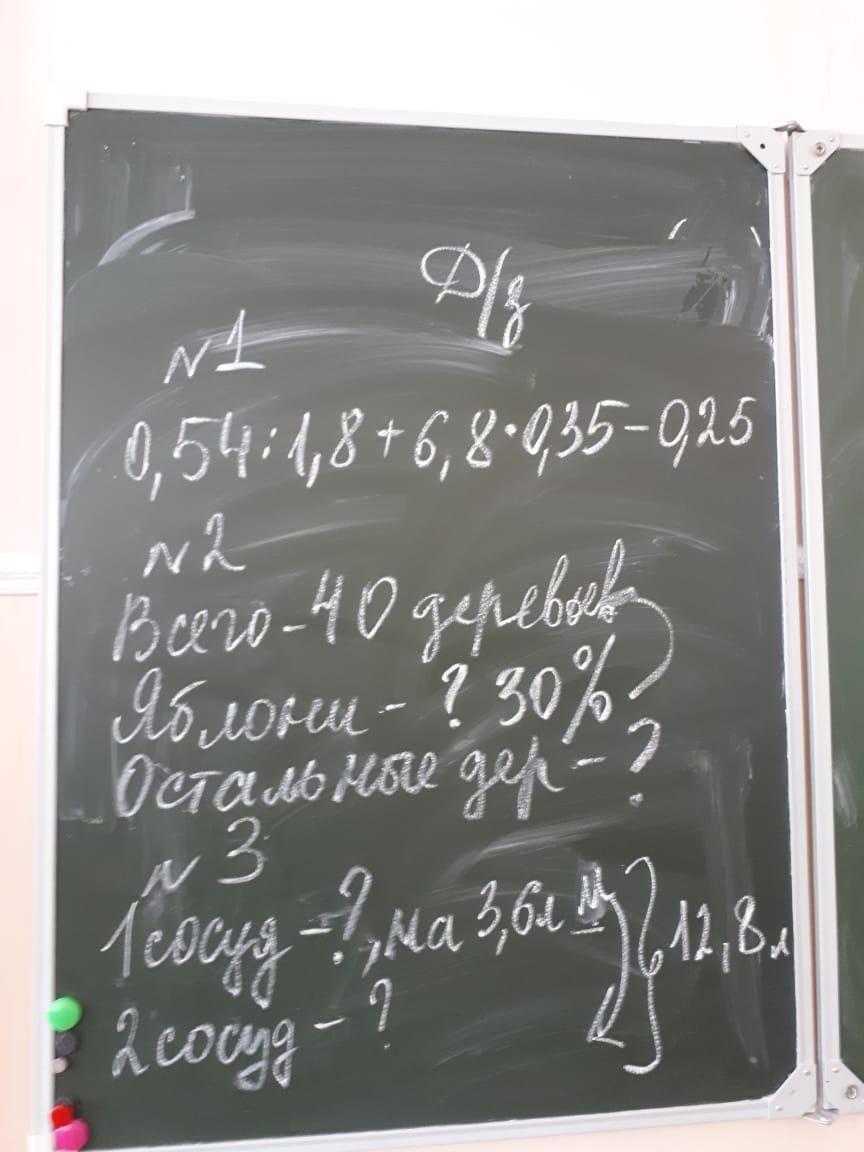 Д/з
N1
0,54:1,8+6,8·0,35-0,25
N2
Всего-40 деревьев
Яблони - ? 30%
Остальные дер - ?
N3
1 сосуд - ?, на 3,6л м } 12,8 л
2 сосуд - ?